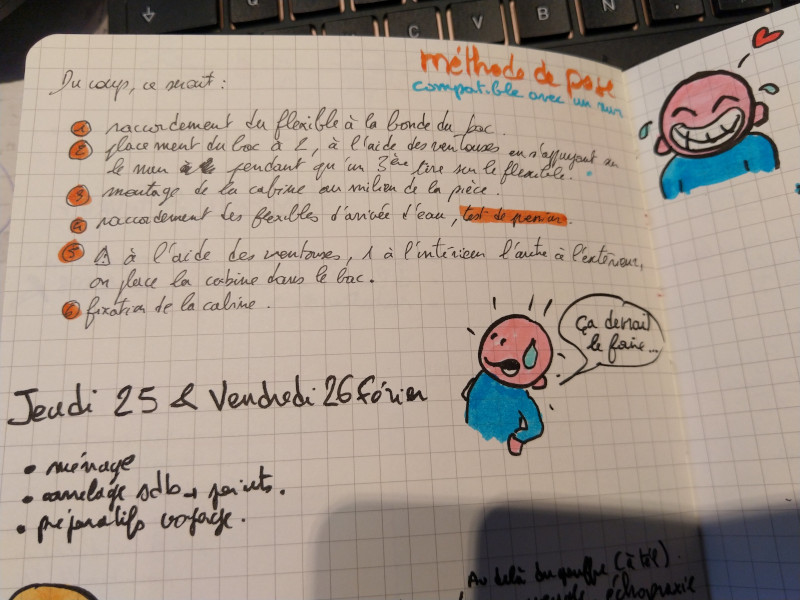 méthode de pose
compatible avec un mur
Du coup, ce serait :
1 raccordement du flexible à la bonde du bac.
2 placement du bac à 2, à l'aide des ventouses en s'appuyant sur
le mur pendant qu'un 3ème tire sur le flexible.
3 montage de la cabine au milieu de la pièce.
4 raccordement des flexibles d'arrivée d'eau, test de pression.
5 ⚠ à l'aide des ventouses, 1 à l'intérieur l'autre à l'extérieur,
on place la cabine dans le bac.
6 fixation de la cabine.
ça devrait
le faire...
Jeudi 25 & Vendredi 26 février
• ménage
• carrelage sdb → joints.
• préparatifs voyage.
Au delà du gouffre (à tél).
échopraxie
C
V
B
N